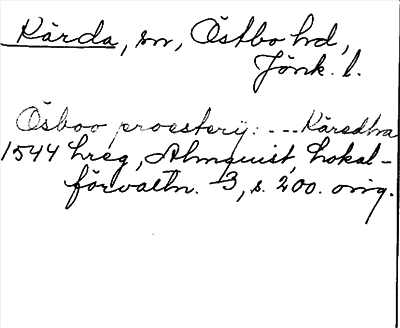 Kärda, sn, Östbo hd,
Jönk. l.
Ösboo proesterij: --- Käredha
1544 hreg, Almquist, Lokal-
förvaltn. 3, s. 200. orig.